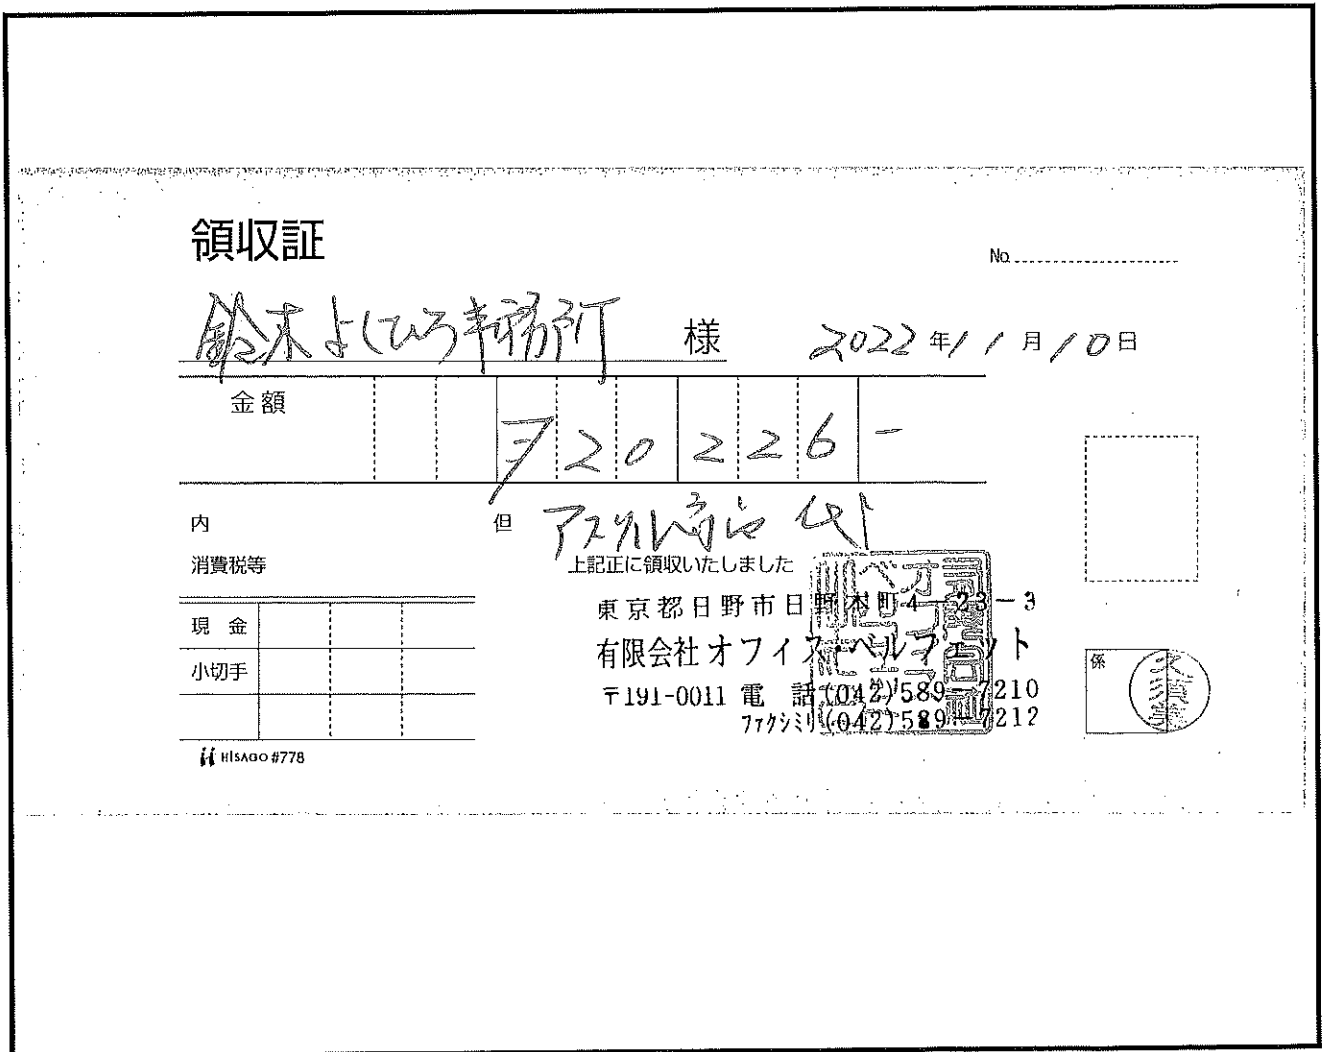 領収証
No.
鈴木よしひろ事務所 様 2022年11月10日
金額 ¥20226-
内 但 アスクル商品代
消費税等 上記正に領収いたしました
東京都日野市日野本町4-23-3
現金 有限会社オフィス・ベルフェット
小切手 〒191-0011 電話(042)589-7210
ファクシミリ(042)589-7212
係
HISAGO #778